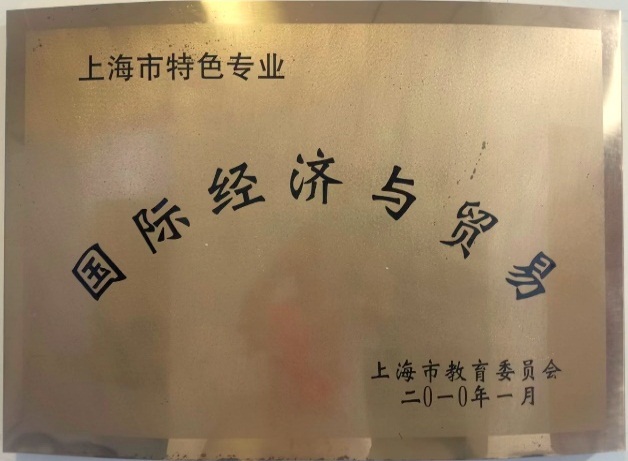 上海市特色专业
国际经济与贸易
上海市教育委员会
二0一0年一月